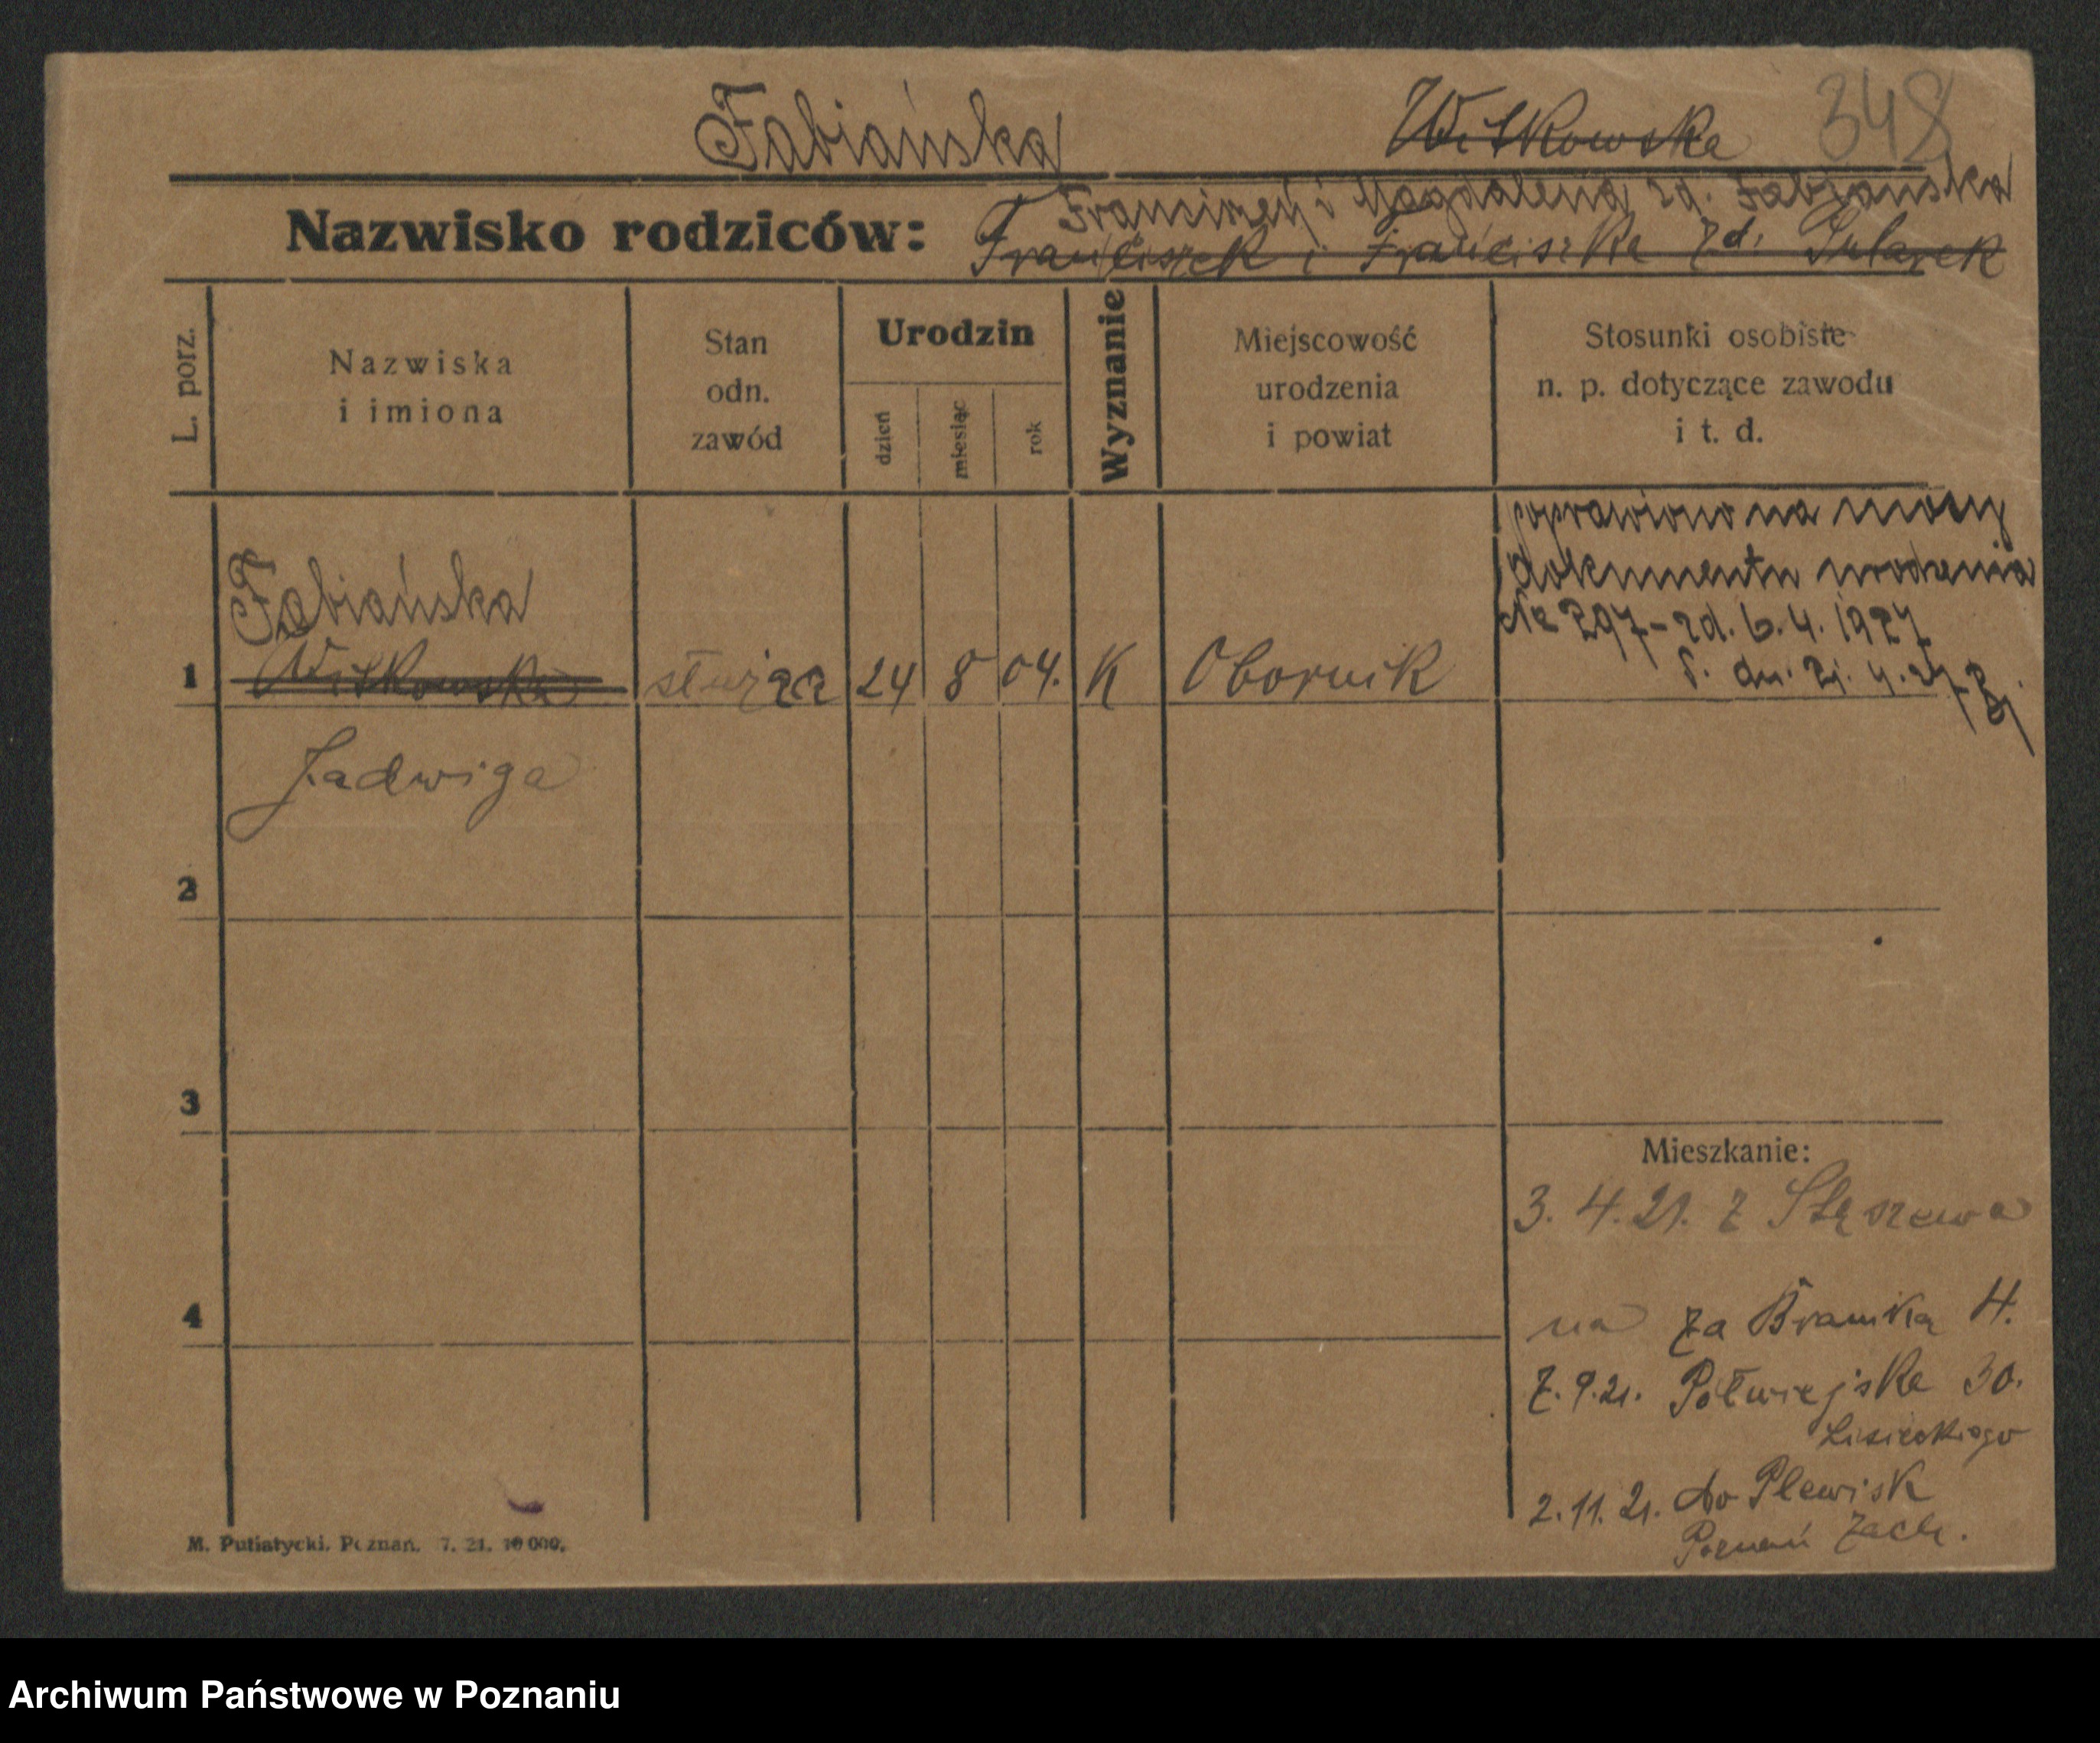 Fabiańska Witkowska 348
Franciszek i Magdalena zd. Fabiańska
Nazwisko rodziców: Franciszek i Franciszka zd.
L. porz.
Nazwiska
i imiona
Stan
odn.
zawód
Urodzin
dzień
miesiąc
rok
Wyznanie
Miejscowość
urodzenia
i powiat
Stosunki osobiste
n. p. dotyczące zawodu
i t. d.
poprawiono na mocy
dokumentu urodzenia
Nr 297 - zd. 6. 4. 1927
P. dn. 21. 4. 27
Fabiańska
1 Witkowska służąca 24 8 04. K Obornik
Jadwiga
2
3
4
Mieszkanie:
3. 4. 21. z Stęszewa
na Za Bramką 4.
7. 9. 21. Półwiejska 30.
Lisieckiego
2. 11. 21. do Plewisk
Poznań Zach.
M. Putiatycki. Poznań. 7. 21. 10 000.
Archiwum Państwowe w Poznaniu